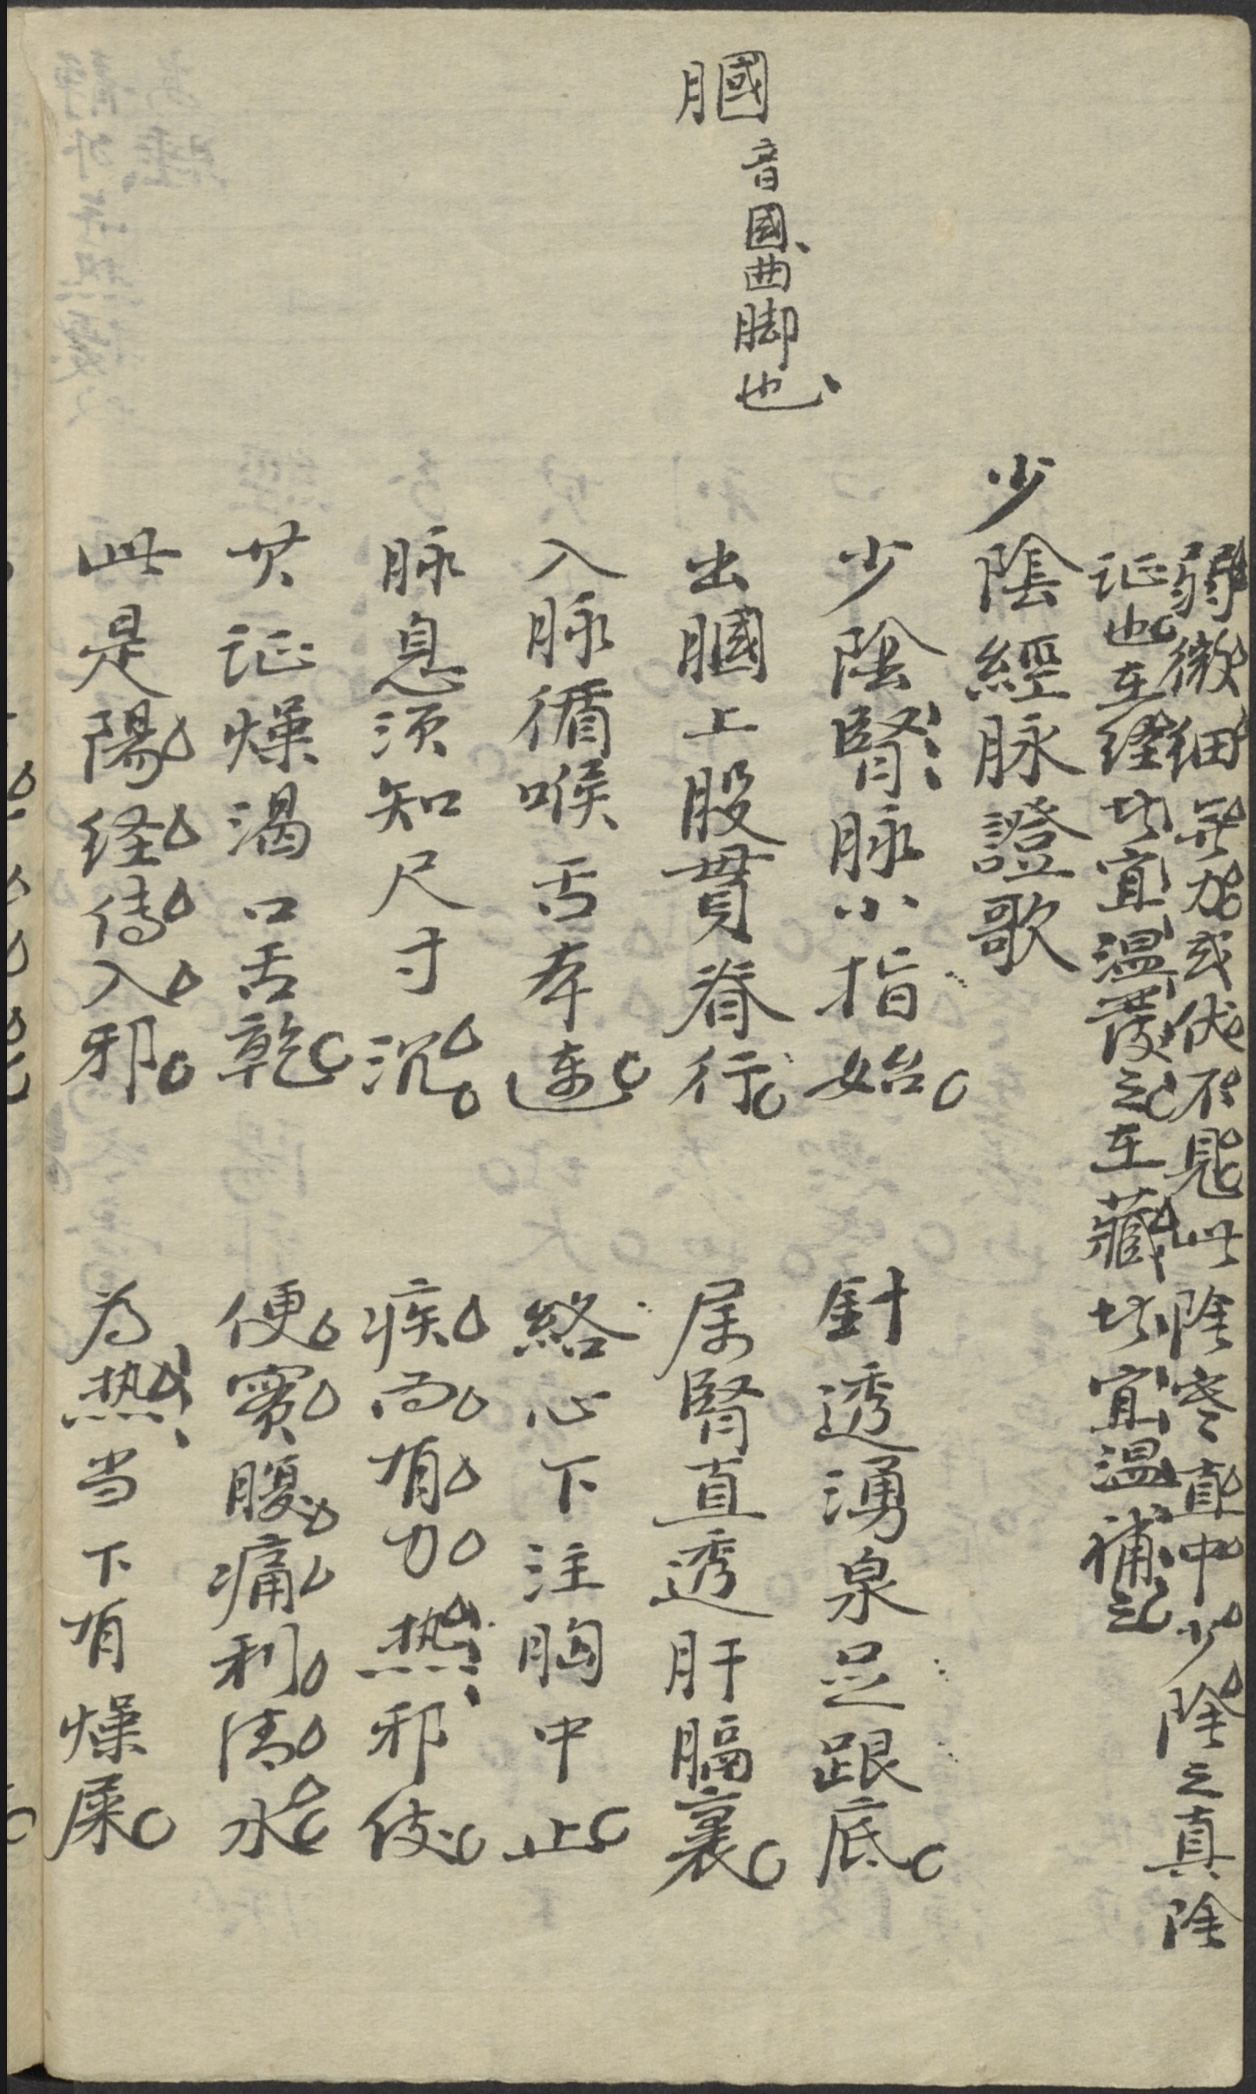 膕
音國曲脚也
弱微細無力或伏不見此陰寒直中少陰之真陰
证也在经者宜温散之在藏者宜温補之
少陰經脉證歌
少陰腎脉小指始 針透湧泉足跟底
出膕上股貫脊行 属腎直透肝膈裏
入脉循喉舌本連 絡心下注胸中止
脉息须知尺寸沉 疾而有力热邪使
其证燥渴口舌乾 便實腹痛利清水
此是陽经傳入邪 為热当下有燥屎